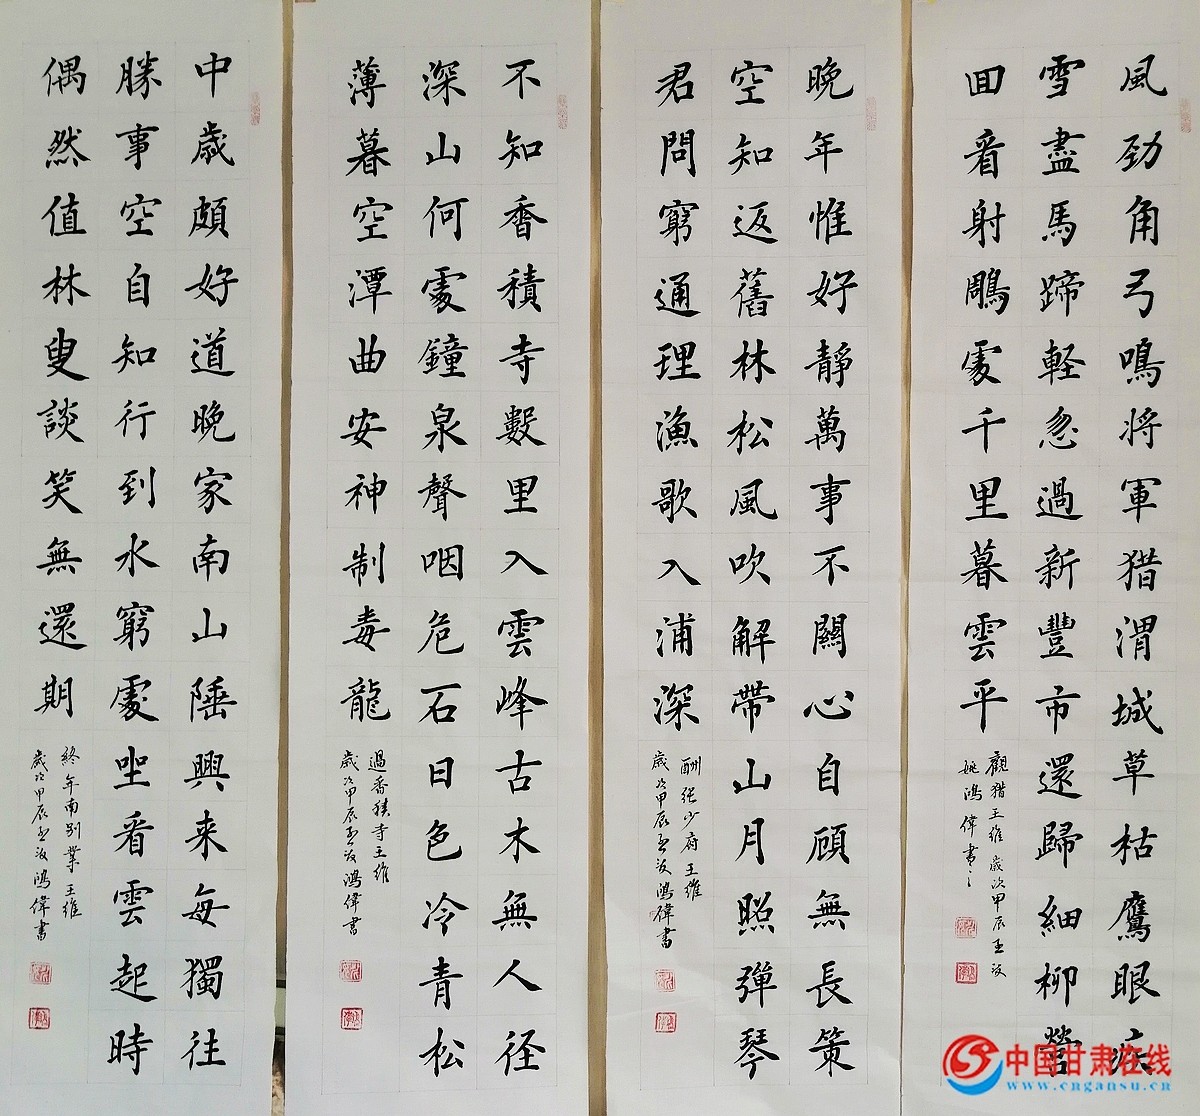 風勁角弓鳴將軍猎渭城草枯鷹眼疾
雪盡馬蹄軽忽過新豐市還歸細柳營
回看射鵰處千里暮雲平
觀猎王維歲次甲辰
姚鴻偉書
晚年惟好靜萬事不關心自顧無長策
空知返舊林松風吹解帶山月照彈琴
君問窮通理漁歌入浦深
酬張少府王維
歲次甲辰鴻偉書
不知香積寺數里入雲峰古木無人径
深山何處鐘泉聲咽危石日色冷青松
薄暮空潭曲安神制毒龍
過香積寺王維
歲次甲辰鴻偉書
中歲頗好道晚家南山陲興来每獨往
勝事空自知行到水窮處坐看雲起時
偶然值林叟談笑無還期
終年南別業王維
歲次甲辰鴻偉書
中国甘肃在线
www.cngansu.cn